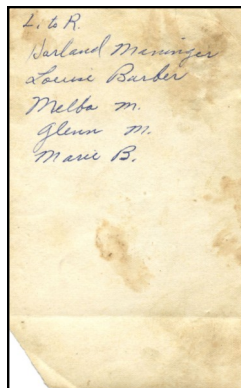 L. to R.
Harland Maninger
Louise Barber
Melba M.
Glenn M.
Marie B.